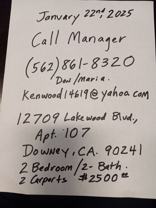 January 22nd, 2025
Call Manager
(562) 861-8320
Dow/Maria.
Kenwood14619@yahoo.com
12709 Lakewood Blvd.,
Apt. 107
Downey, CA. 90241
2 Bedroom / 2- Bath.
2 Carports $2500 00